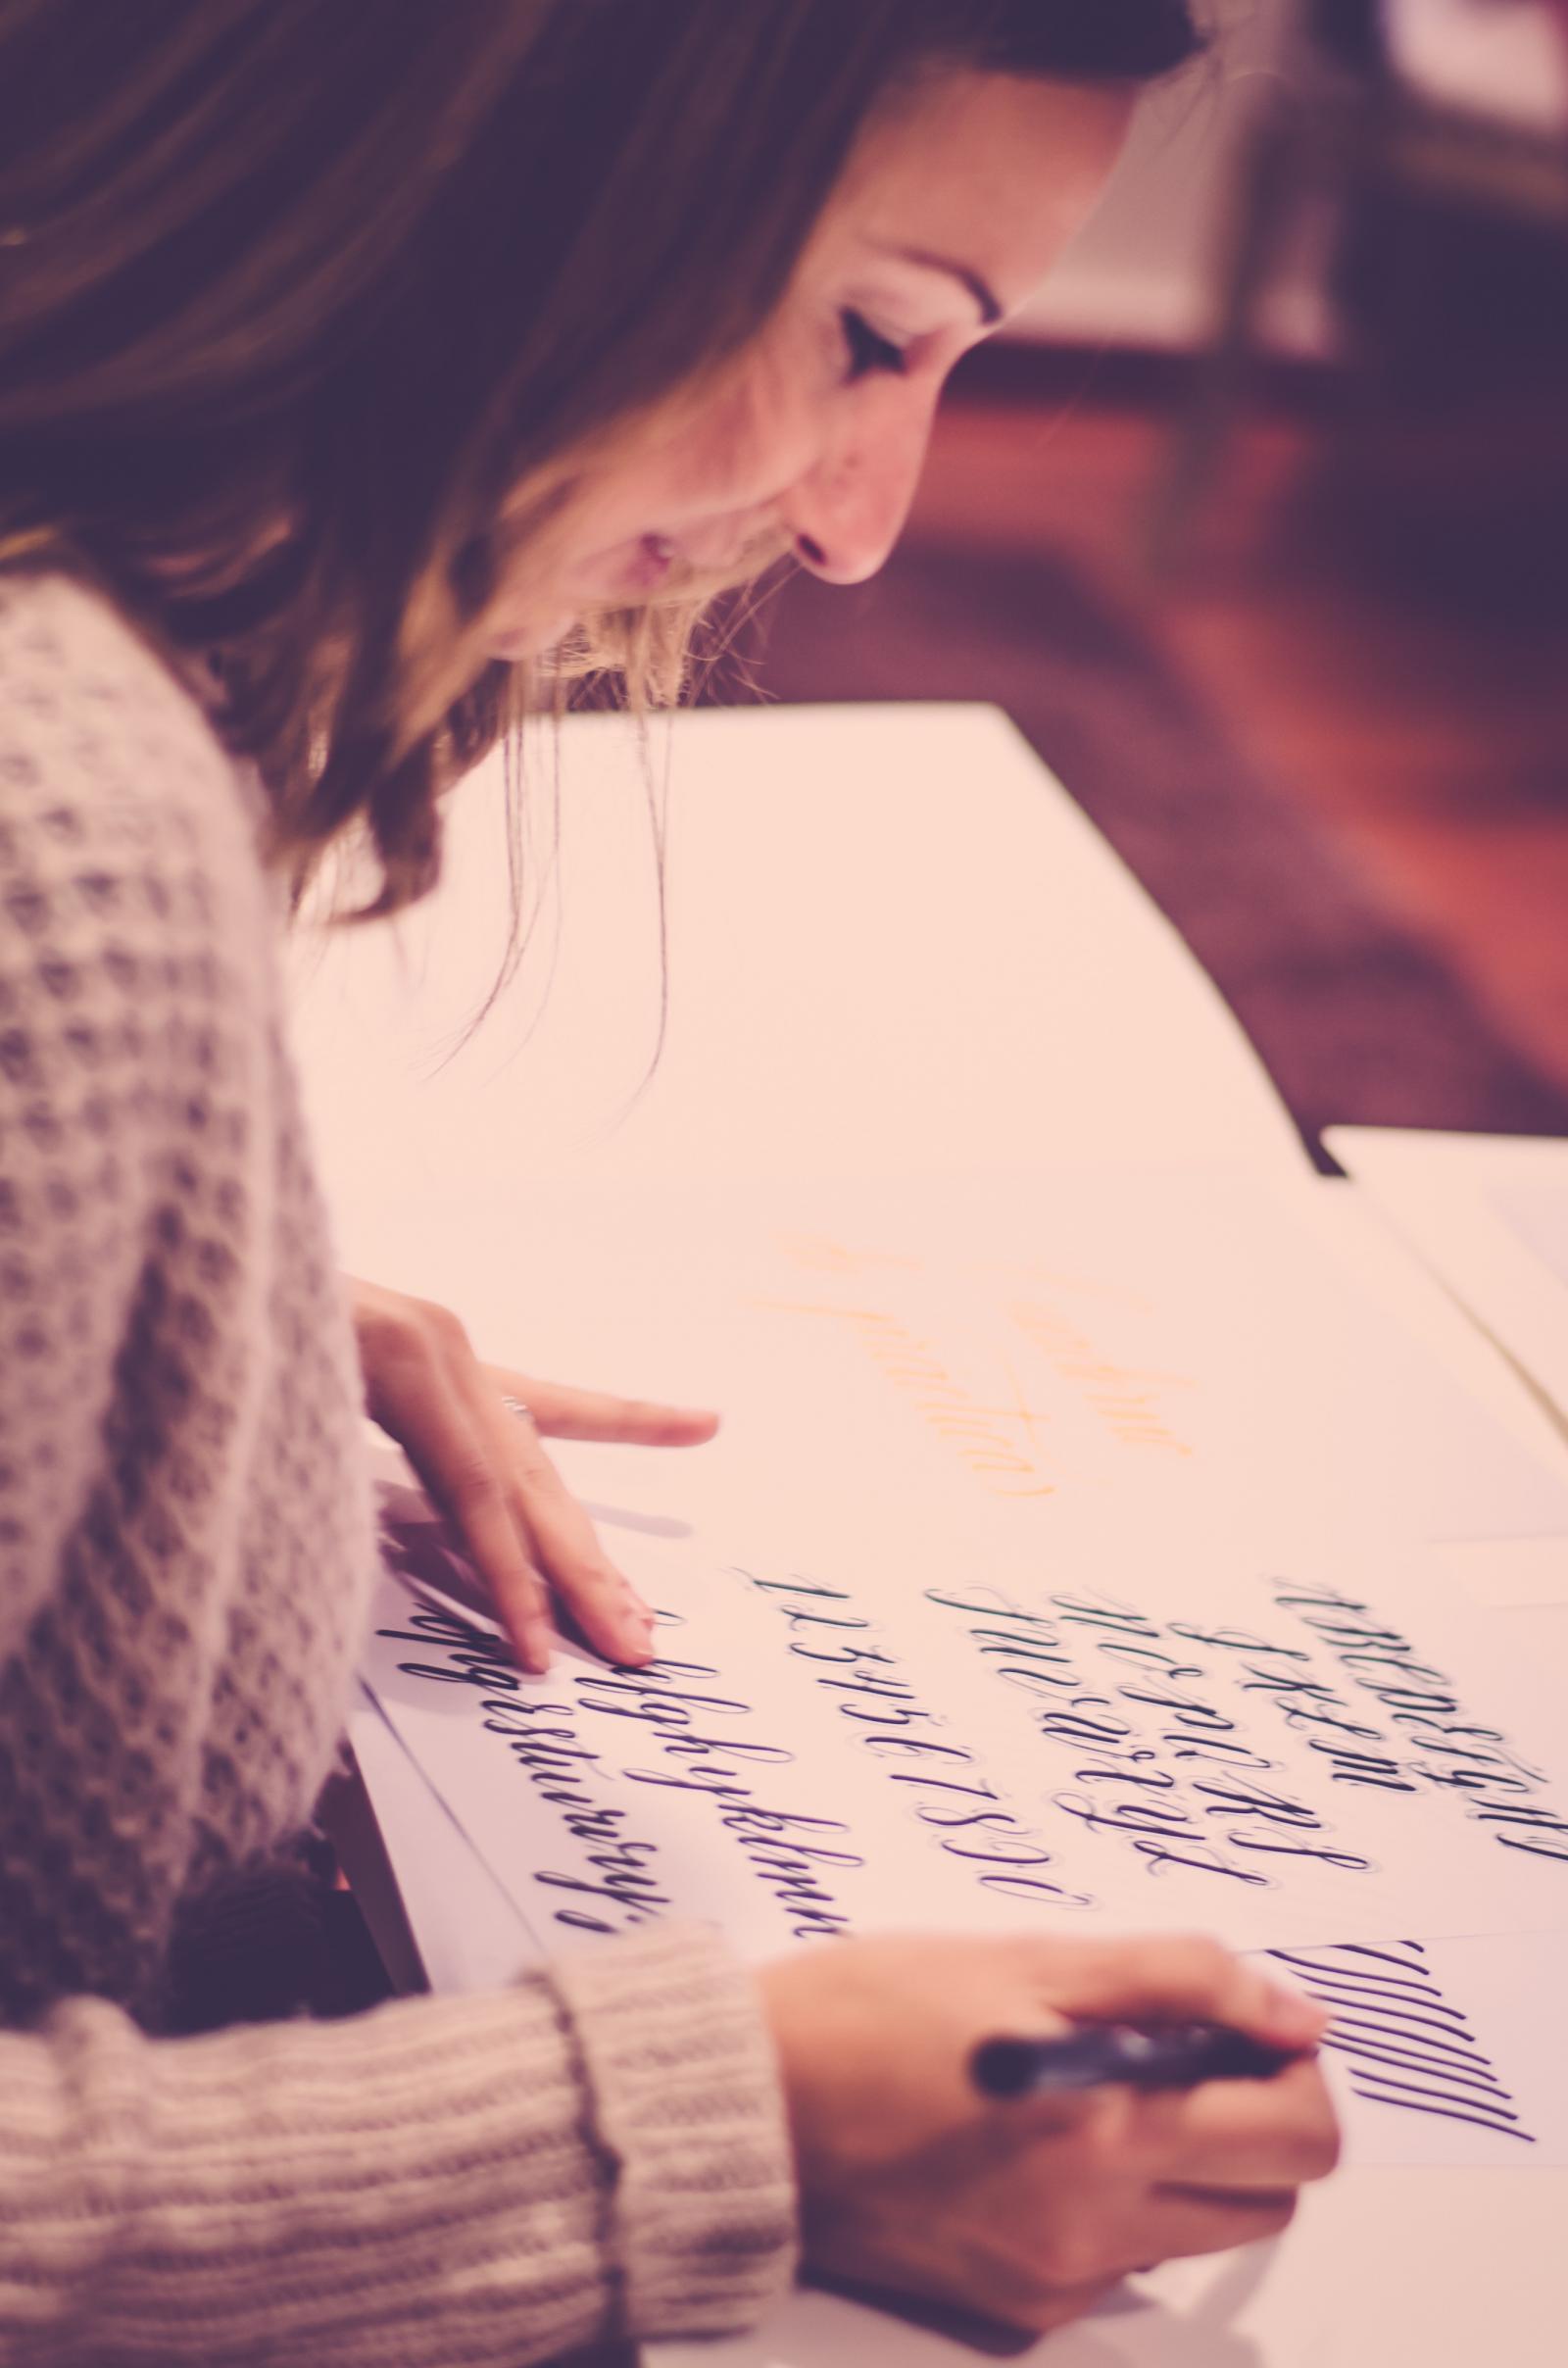 ABCDEFGHI
JKLM
NOPQRS
TUVWXYZ
1234567890
efghijklmn
opqrstuvwxyz